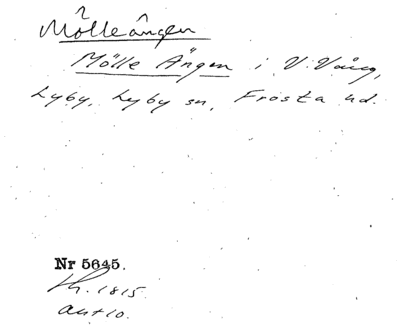 Mölleängen
Mölle Ängen i V. Vång,
Lyby, Lyby sn, Frosta hd.
Nr 5645.
1815.